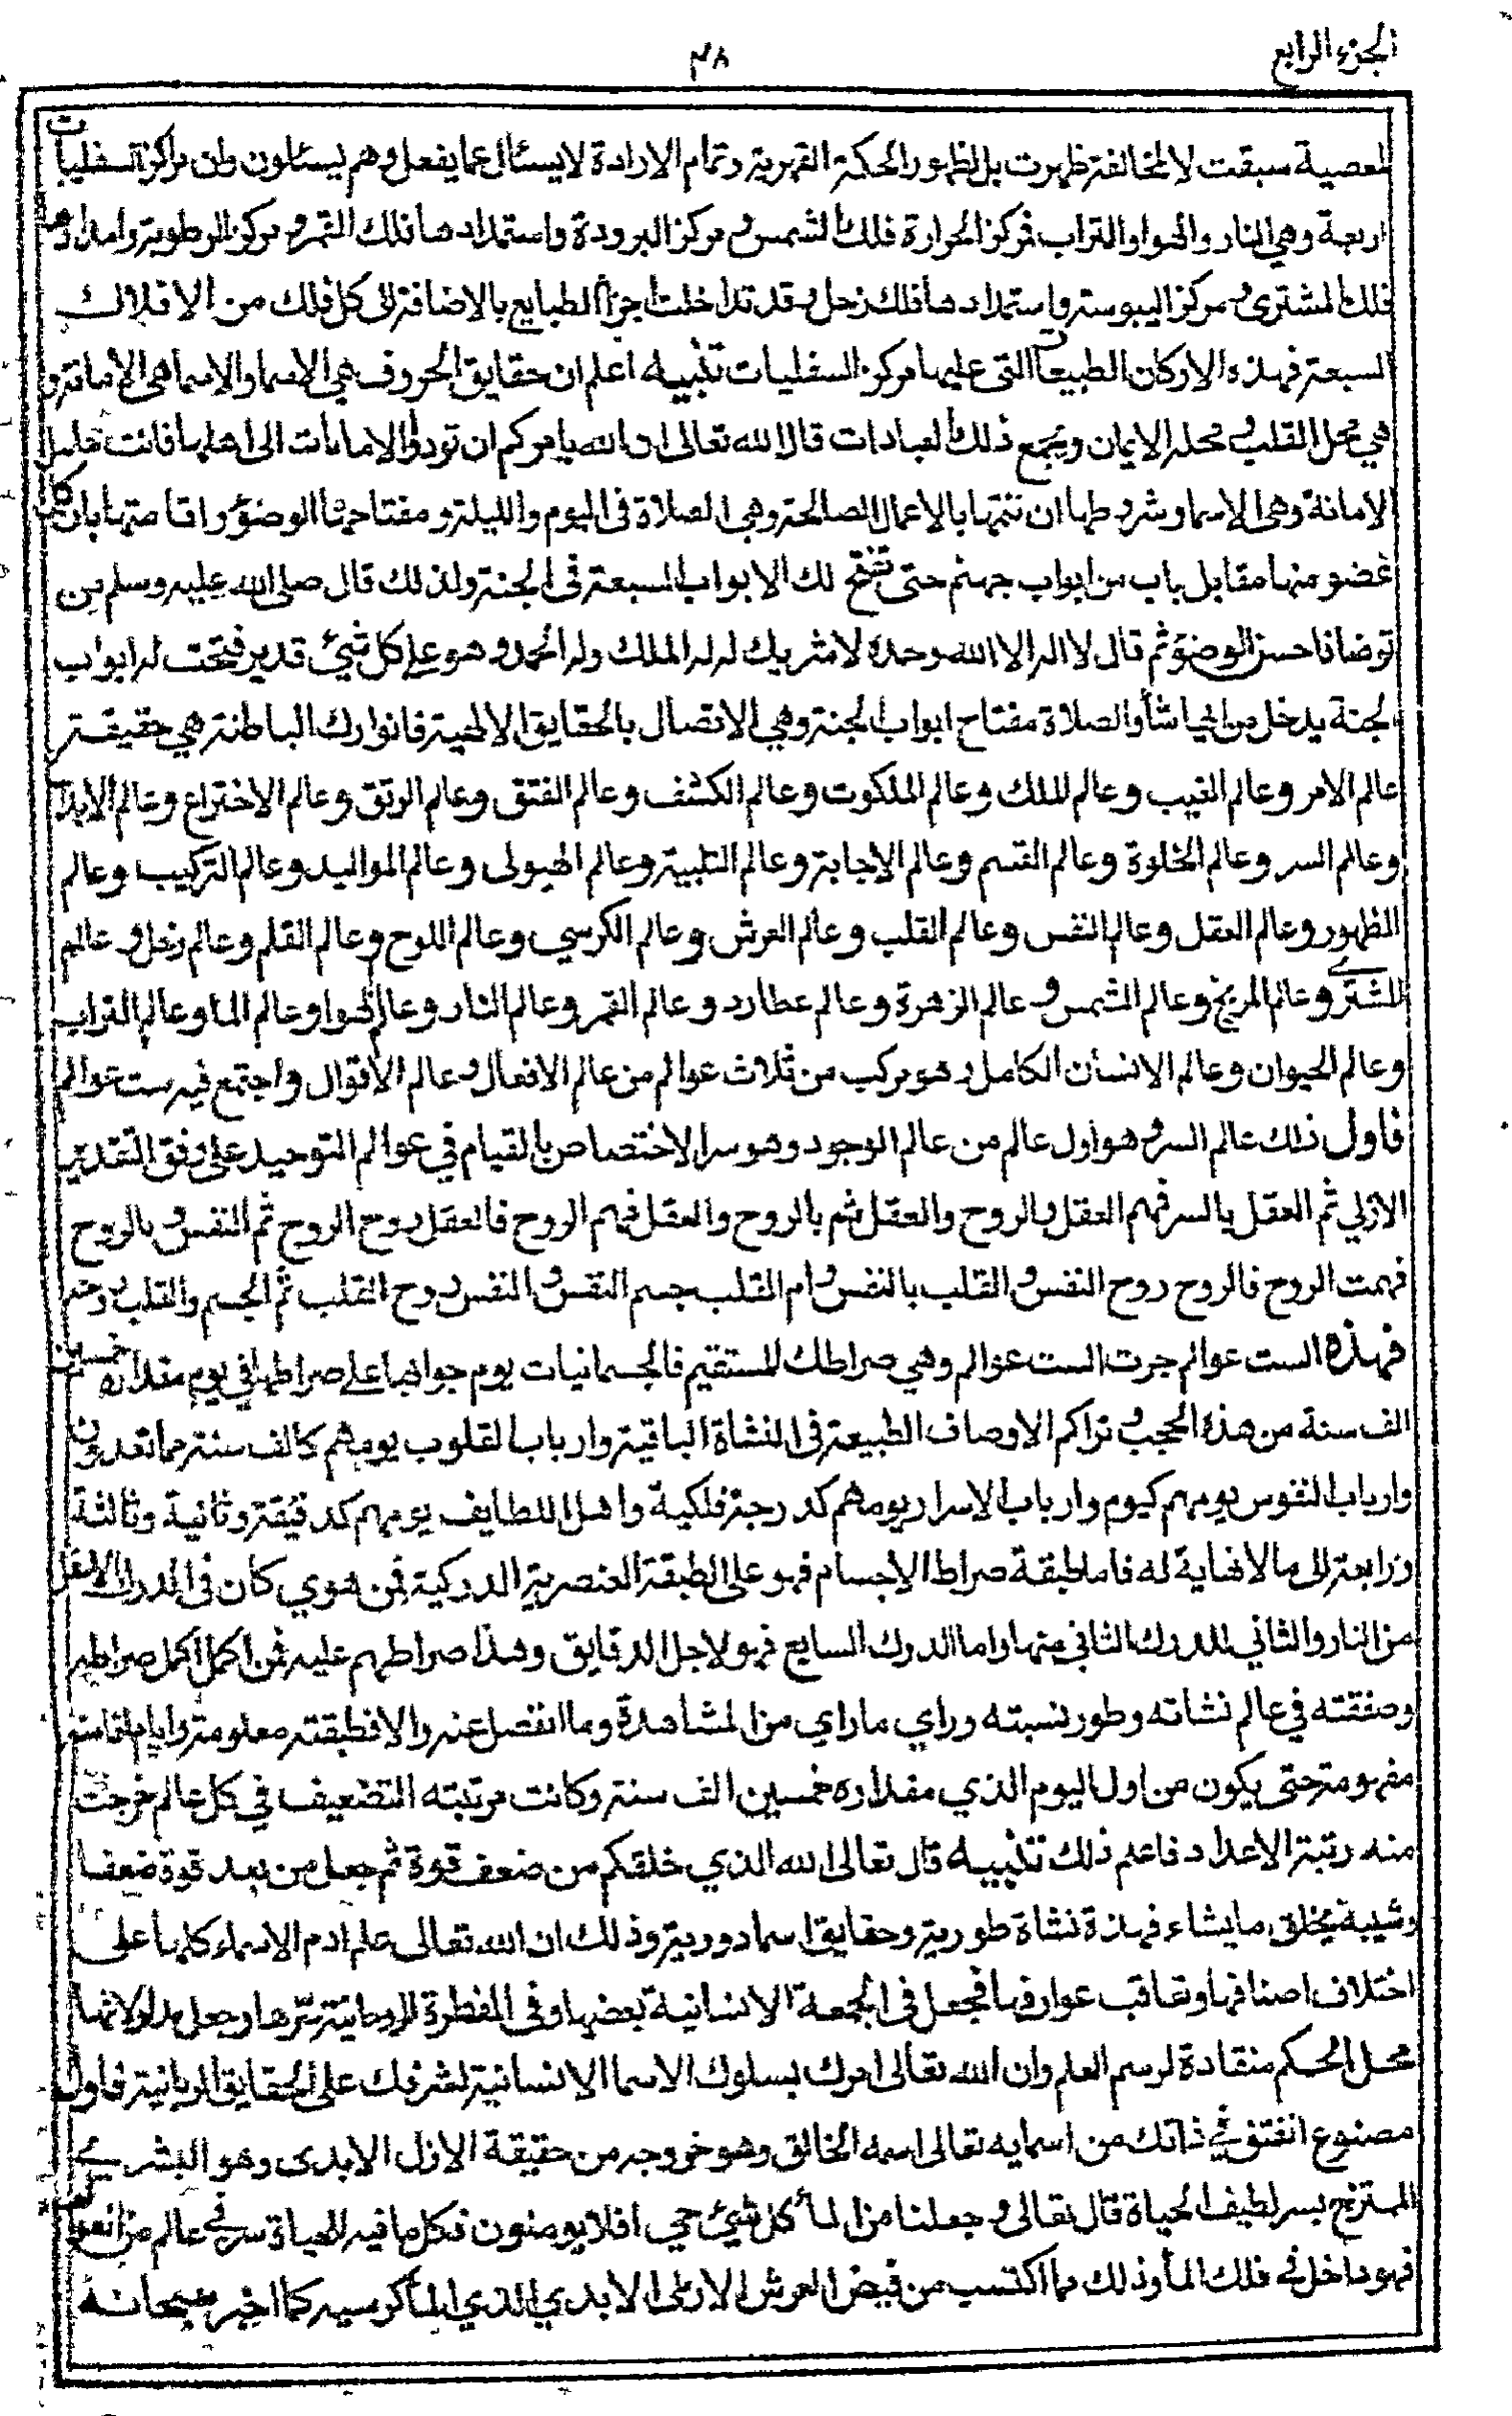 الجزء الرابع
٤٨
لمعصية سبقت لا لمخالفة ظهرت بل لظهور الحكمة القهرية وتمام الارادة لا يسئال عما يفعل وهم يسئلون وان مراكز السفليات
اربعة وهي النار والهوا والتراب فمركز الحرارة فلك الشمس ومركز البرودة واستمدادها فلك القمر ومركز الرطوبة وامدادها
فلك المشترى ومركز اليبوسة واستمدادها فلك زحل وقد تداخلت اجزأ الطبايع بالاضافة الى كل فلك من الافلاك
السبعة فهذه الاركان الطبيعيات التى عليها مركز السفليات تنبيه اعلم ان حقايق الحروف هي الاسما والاسما هى الامانة و
هي محل القلب ومحله الايمان ويجمع ذلك لعبادات قال الله تعالى ان الله يامركم ان تودوا الامانات الى اهلها فانت حامل
الامانة وهى الاسما وشرطها ان تنتهبا بالاعمال الصالحة وهي الصلاة فى اليوم والليلة ومفتاحها الوضوء واقامتها بان كل
عضو منها مقابل باب من ابواب جهنم حتى تنفتح لك الابواب السبعة فى الجنة ولذلك قال صلى الله عليه وسلم من
توضا فاحسن الوضوء ثم قال لا اله الا الله وحده لا شريك له له الملك وله الحمد وهو على كل شيئ قدير فتحت له ابواب
لجنة يدخل من ايها شأ والصلاة مفتاح ابواب الجنة وهي الاتصال بالحقايق الالهية فانوارك الباطنة هي حقيقة
عالم الامر وعالم الغيب وعالم الملك وعالم الملكوت وعالم الكشف وعالم الفتق وعالم الرتق وعالم الاختراع وعالم الابداع
وعالم السر وعالم الخلوة وعالم القسم وعالم الاجابة وعالم التلبية وعالم الهيولى وعالم المواليد وعالم التركيب وعالم
الظهور وعالم العقل وعالم النفس وعالم القلب وعالم العرش وعالم الكرسي وعالم اللوح وعالم القلم وعالم زحل وعالم
المشترى وعالم المريخ وعالم الشمس وعالم الزهرة وعالم عطارد وعالم القمر وعالم النار وعالم الهوا وعالم الما وعالم التراب
وعالم الحيوان وعالم الانسان الكامل وهو مركب من ثلاث عوالم من عالم الافعال وعالم الاقوال واجتمع فيه ست عوالم
فاول ذلك عالم السر وهو اول عالم من عالم الوجود وهو سر الاختصاص بالقيام في عوالم التوحيد على وفق التقدير
الازلي ثم العقل بالسر فهم العقل بالروح والعقل ثم بالروح والعقل فهم الروح فالعقل روح الروح ثم النفس بالروح
فهمت الروح فالروح روح النفس والقلب بالنفس وام القلب جسم النفس والنفس روح القلب ثم الجسم والقلب روحه
فهذه الست عوالم جرت الست عوالم وهي صراطك المستقيم فالجسمانيات يوم جوازها على صراطها في يوم مقداره خمسين
الف سنة من هذه الحجب وتراكم الاوصاف الطبيعة فى النشاة الباقية وارباب القلوب يومهم كالف سنة مما تعدون
وارباب النفوس يومهم كيوم وارباب الاسرار يومهم كدرجة فلكية واهل اللطايف يومهم كدقيقة وثانية وثالثة
ورابعة الى ما لا نهاية له فاما طبقة صراط الاجسام فهو على الطبقة العنصرية الدركية فمن هوي كان فى الدرك الاسفل
من النار والثاني للدرك الثاني منها واما الدرك السابع فهو لاجل الدقايق وهذا صراطهم عليه فمن اكمل اكمل صراطه
وصفقته في عالم نشاته وطور نسبته وراي ماراي من المشاهدة وما انفصل عنه والا فطبقته معلومة وايام اقامته
مفهومة حتى يكون من اول اليوم الذي مقداره خمسين الف سنة وكانت مرتبته التضعيف في كل عالم خرجت
منه رتبة الاعداد فاعلم ذلك تنبيه قال تعالى الله الذي خلقكم من ضعف قوة ثم جعل من بعد قوة ضعفا
وشيبة يخلق ما يشاء فهذة نشاة طورية وحقايق اسما دورية وذلك ان الله تعالى علم ادم الاسماء كلها على
اختلاف اصنافها وتعاقب عوارفها فجعل فى الجمعة الانسانية بعضها وفى الفطرة الروحانية سرها وجعل مدلولاتها
محل الحكم منقادة لرسم العلم وان الله تعالى امرك بسلوك الاسما الانسانية لشرفك على الحقايق الربانية فاول
مصنوع انفتق في ذاتك من اسمايه تعالى اسمه الخالق وهو خروجه من حقيقة الازل الابدى وهو البشرى
الممتزج بسر لطيف الحياة قال تعالى وجعلنا من المأ كل شيئ حي افلا يومنون فكل ما فيه الحياة سر في عالم من العوالم
فهو داخل في فلك المأ وذلك مما اكتسب من فيض العرش الازلى الابدي الذي المأ كرسيه كما اخبر سبحانه